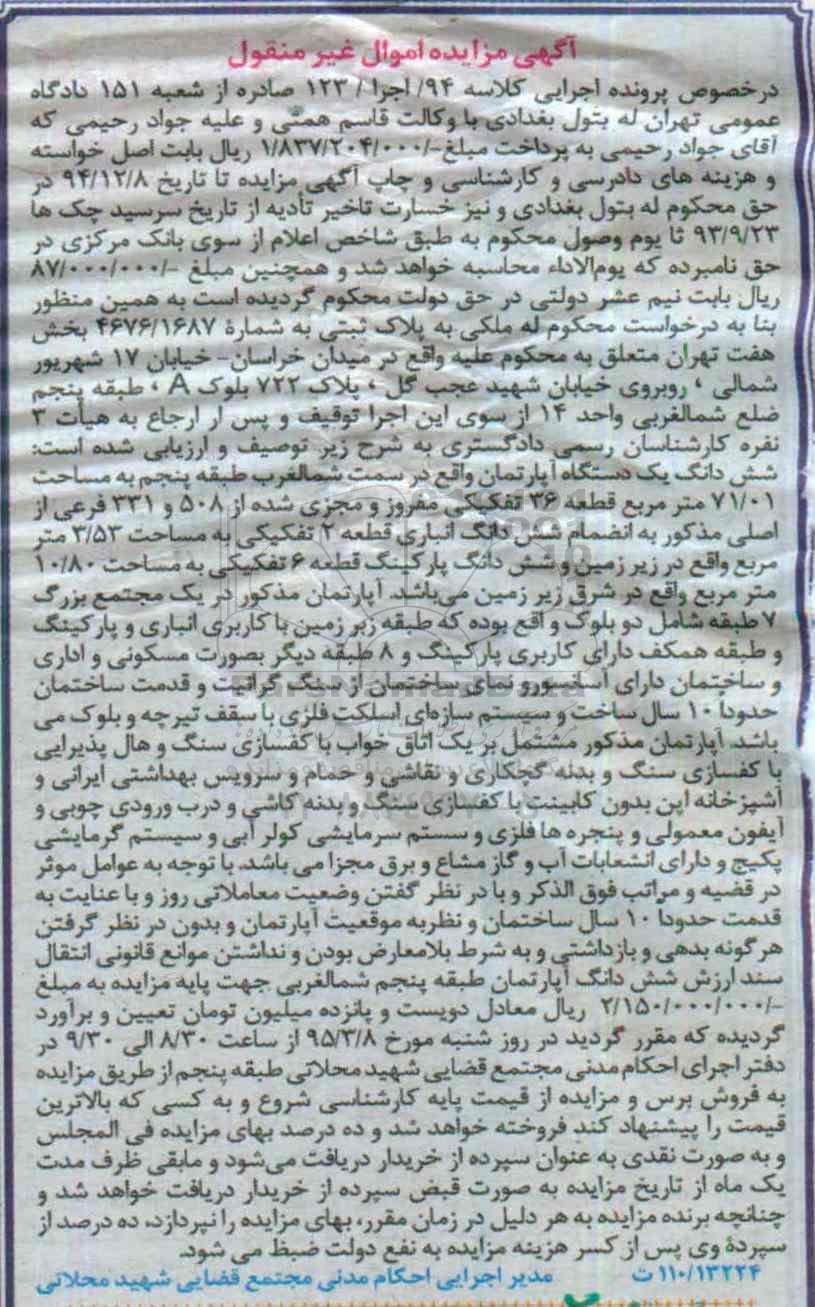 آگهی مزایده اموال غیر منقول
درخصوص پرونده اجرایی کلاسه ۹۴/ اجرا / ۱۲۳ صادره از شعبه ۱۵۱ دادگاه
عمومی تهران له بتول بغدادی با وکالت قاسم همتی و علیه جواد رحیمی که
آقای جواد رحیمی به پرداخت مبلغ-/۱/۸۳۷/۲۰۴/۰۰۰ ریال بابت اصل خواسته
و هزینه های دادرسی و کارشناسی و چاپ آگهی مزایده تا تاریخ ۹۴/۱۲/۸ در
حق محکوم له بتول بغدادی و نیز خسارت تاخیر تأدیه از تاریخ سرسید چک ها
۹۳/۹/۲۳ تا یوم وصول محکوم به طبق شاخص اعلام از سوی بانک مرکزی در
حق نامبرده که یوم‌الاداء محاسبه خواهد شد و همچنین مبلغ -/۸۷/۰۰۰/۰۰۰
ریال بابت نیم عشر دولتی در حق دولت محکوم گردیده است به همین منظور
بنا به درخواست محکوم له ملکی به پلاک ثبتی به شمارهٔ ۴۶۷۶/۱۶۸۷ بخش
هفت تهران متعلق به محکوم علیه واقع در میدان خراسان- خیابان ۱۷ شهریور
شمالی ، روبروی خیابان شهید عجب گل ، پلاک ۷۲۲ بلوک A ، طبقه پنجم
ضلع شمالغربی واحد ۱۴ از سوی این اجرا توقیف و پس ار ارجاع به هیأت ۳
نفره کارشناسان رسمی دادگستری به شرح زیر توصیف و ارزیابی شده است:
شش دانگ یک دستگاه آپارتمان واقع در سمت شمالغرب طبقه پنجم به مساحت
۷۱/۰۱ متر مربع قطعه ۳۶ تفکیکی مفروز و مجزی شده از ۵۰۸ و ۳۳۱ فرعی از
اصلی مذکور به انضمام شش دانگ انباری قطعه ۲ تفکیکی به مساحت ۳/۵۳ متر
مربع واقع در زیر زمین و شش دانگ پارکینگ قطعه ۶ تفکیکی به مساحت ۱۰/۸۰
متر مربع واقع در شرق زیر زمین می‌باشد. آپارتمان مذکور در یک مجتمع بزرگ
۷ طبقه شامل دو بلوک واقع بوده که طبقه زیر زمین با کاربری انباری و پارکینگ
و طبقه همکف دارای کاربری پارکینگ و ۸ طبقه دیگر بصورت مسکونی و اداری
و ساختمان دارای آسانسورو نمای ساختمان از سنگ گرانیت و قدمت ساختمان
حدوداً ۱۰ سال ساخت و سیستم سازه‌ای اسلکت فلزی با سقف تیرچه و بلوک می
باشد. آپارتمان مذکور مشتمل بر یک اتاق خواب با کفسازی سنگ و هال پذیرایی
با کفسازی سنگ و بدنه گچکاری و نقاشی و حمام و سرویس بهداشتی ایرانی و
آشپزخانه اپن بدون کابینت با کفسازی سنگ و بدنه کاشی و درب ورودی چوبی و
آیفون معمولی و پنجره ها فلزی و سستم سرمایشی کولر آبی و سیستم گرمایشی
پکیج و دارای انشعابات آب و گاز مشاع و برق مجزا می باشد. با توجه به عوامل موثر
در قضیه و مراتب فوق الذکر و با در نظر گفتن وضعیت معاملاتی روز و با عنایت به
قدمت حدودا ۱۰ سال ساختمان و نظربه موقعیت آپارتمان و بدون در نظر گرفتن
هرگونه بدهی و بازداشتی و به شرط بلامعارض بودن و نداشتن موانع قانونی انتقال
سند ارزش شش دانگ آپارتمان طبقه پنجم شمالغربی جهت پایه مزایده به مبلغ
-/۲/۱۵۰/۰۰۰/۰۰۰ ریال معادل دویست و پانزده میلیون تومان تعیین و برآورد
گردیده که مقرر گردید در روز شنبه مورخ ۹۵/۳/۸ از ساعت ۸/۳۰ الی ۹/۳۰ در
دفتر اجرای احکام مدنی مجتمع قضایی شهید محلاتی طبقه پنجم از طریق مزایده
به فروش برس و مزایده از قیمت پایه کارشناسی شروع و به کسی که بالاترین
قیمت را پیشنهاد کند فروخته خواهد شد و ده درصد بهای مزایده فی المجلس
و به صورت نقدی به عنوان سپرده از خریدار دریافت می‌شود و مابقی ظرف مدت
یک ماه از تاریخ مزایده به صورت قبض سپرده از خریدار دریافت خواهد شد و
چنانچه برنده مزایده به هر دلیل در زمان مقرر، بهای مزایده را نپردازد، ده درصد از
سپردهٔ وی پس از کسر هزینه مزایده به نفع دولت ضبط می شود.
۱۱۰/۱۳۲۲۴ ت مدیر اجرایی احکام مدنی مجتمع قضایی شهید محلاتی